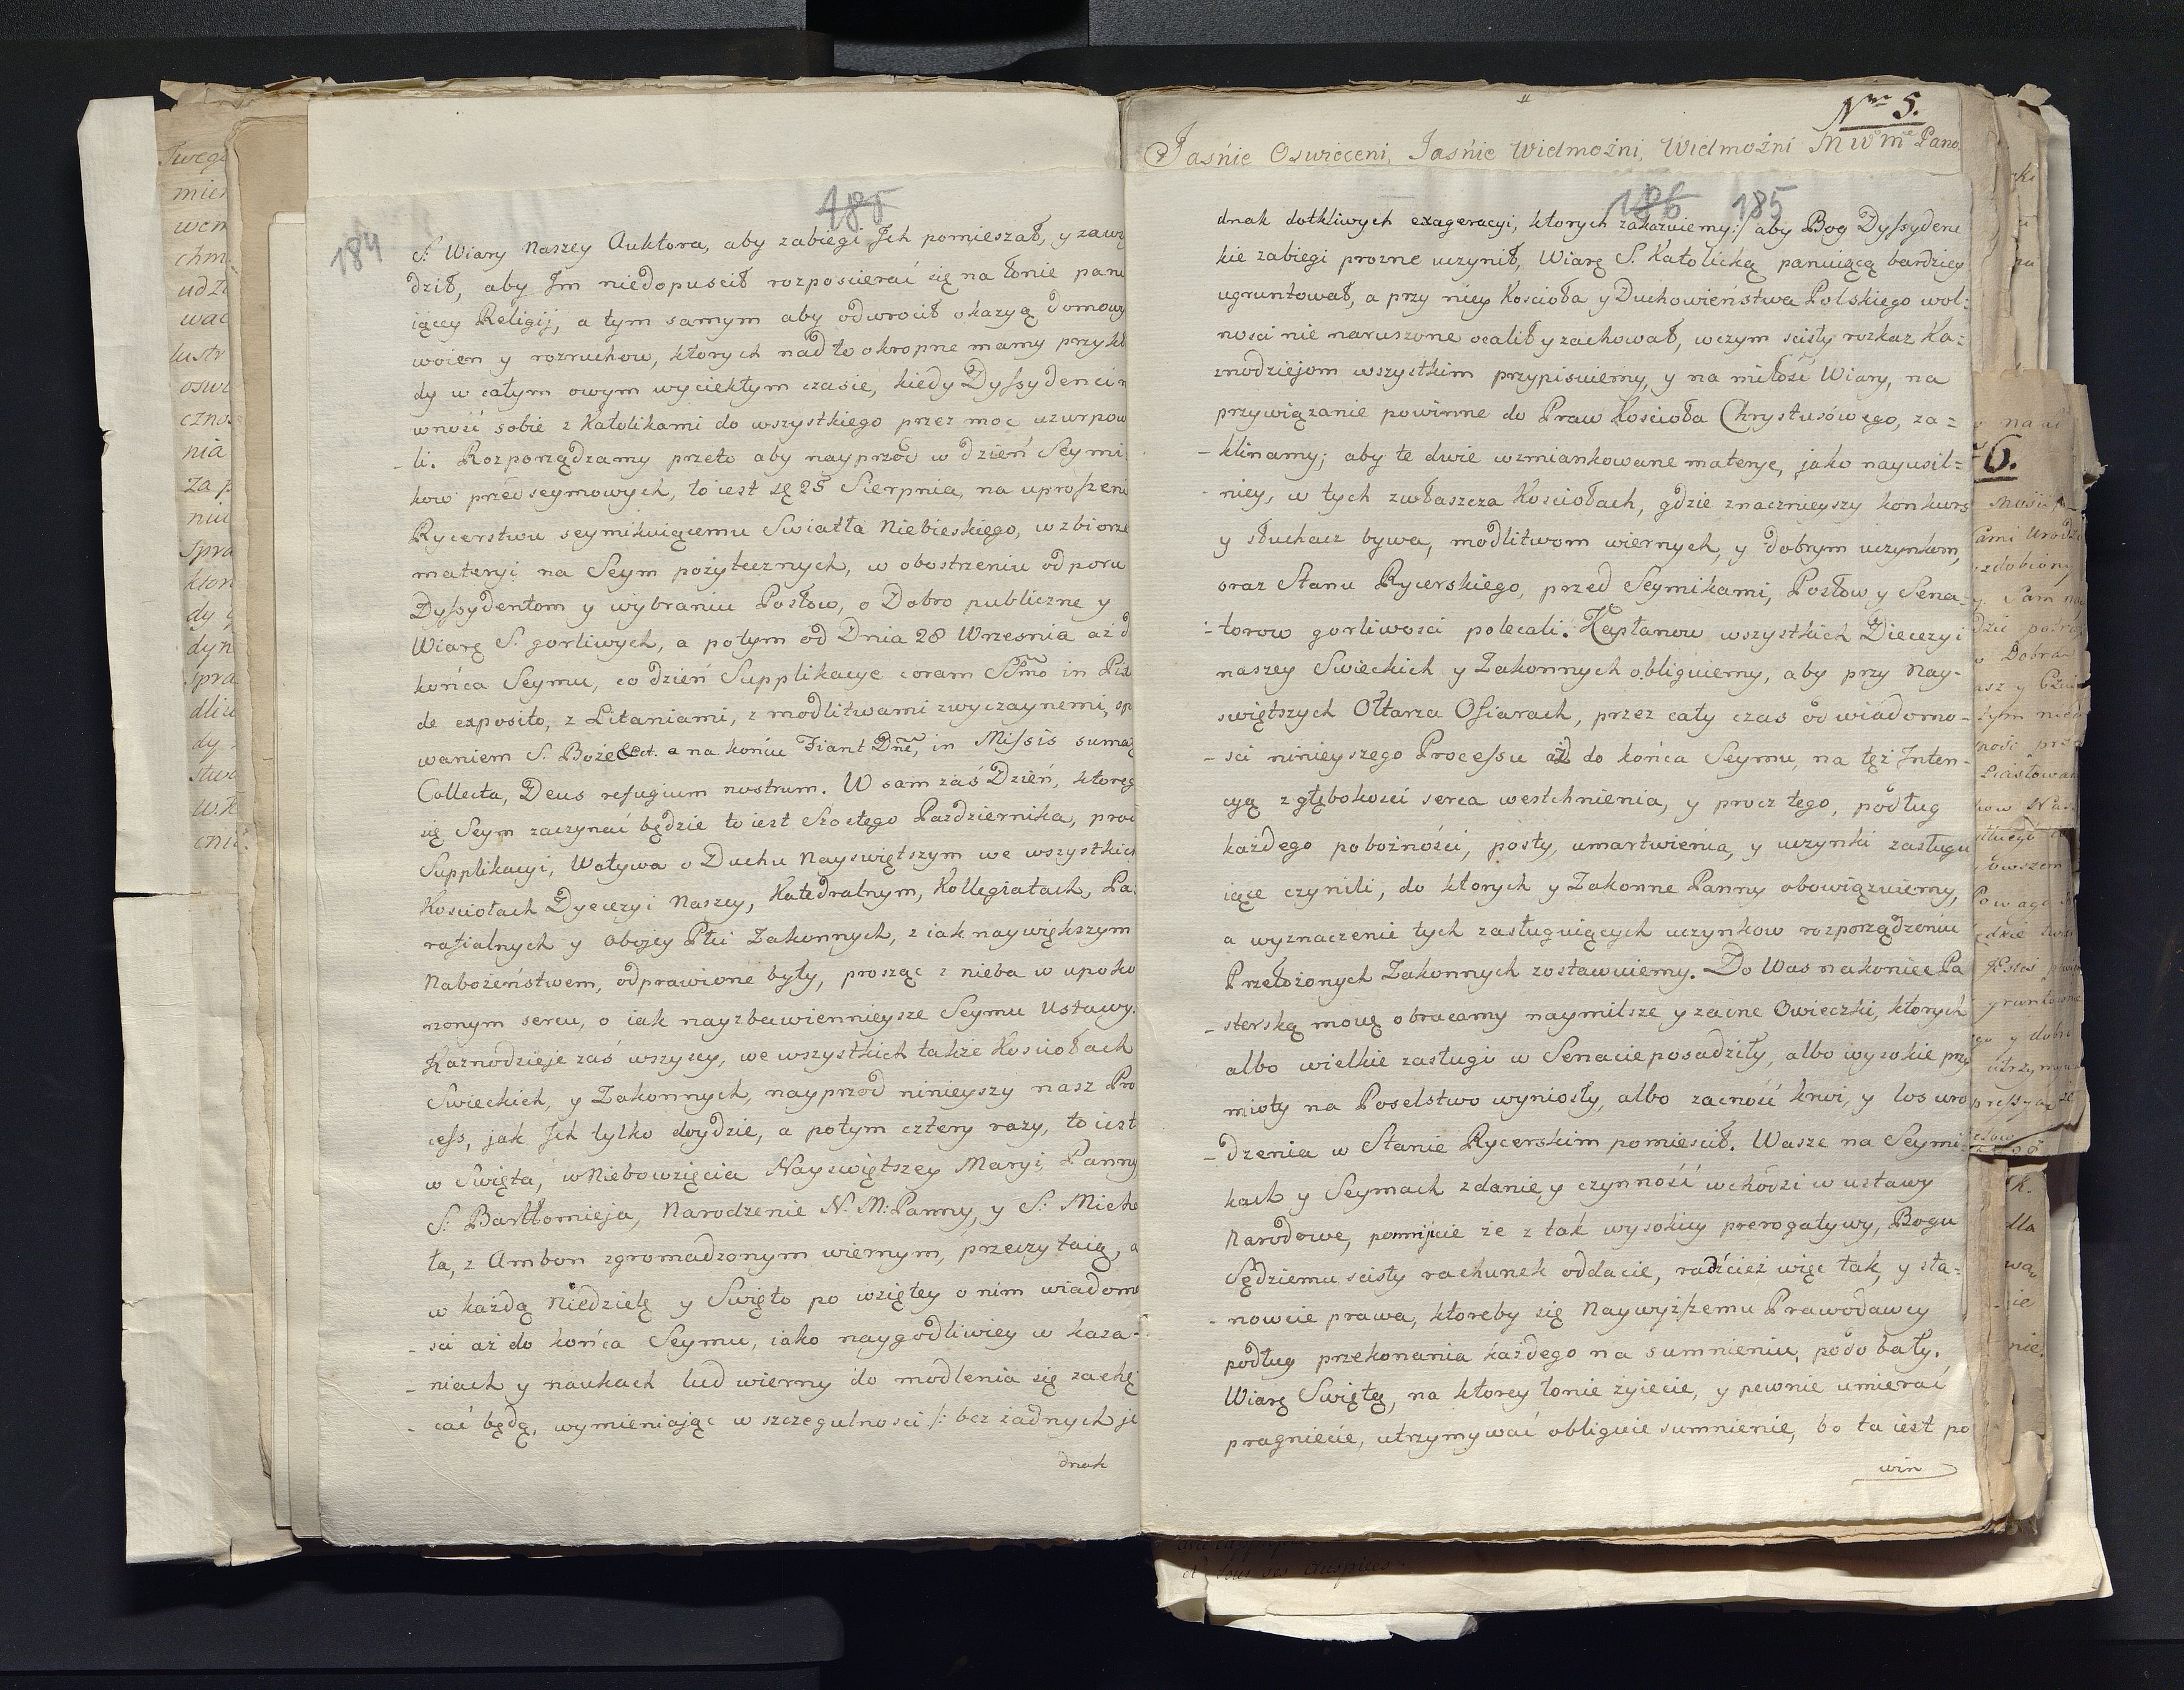 184
185
S: Wiary Naszey Auktora, aby zabiegi Jch pomieszał, y zawi
dził, aby Jm niedopuscił rozposcierać się na łonie panu
iącey Religij, a tym samym aby odwrocił okazyą domowy
woien y rozruchow, ktorych nadto okropne mamy przykł
dy w całym owym wyciekłym czasie, kiedy Dyssydenci r
wność sobie z Katolikami do wszystkiego przez moc uzurpow
- li. Rozporządzamy przeto aby nayprzód w dzień Seymi
kow przedseymowych, to iest sę 25 Sierpnia, na uproszeni
Rycerstwu seymikuiącemu Swiatła Niebieskiego, w zbiorze
materyi na Seym pożytecznych, w obostrzeniu odporu
Dyssydentom y wybraniu Posłow, o Dobro publiczne y
Wiarę S. gorliwych, a potym od Dnia 28 Wrzesnia aż d
końca Seymu, co dzień Supplikacye coram SSmo in Pixi
de exposito, z Litaniami, z modlitwami zwyczaynemi, sp
waniem S. Boże &ct. a na końcu Fiant Dñe, in Missis sumaẽ
Collecta, Deus refugium nostrum. W sam zaś Dzień, ktoreg
się Seym zaczynać będzie to iest Szostego Pazdziernika, proc
Supplikacyi, Wotywa o Duchu Nayswiętszym we wszystkich
Kosciołach Dyecezyi Naszey, Katedralnym, Kollegiatach, Pa.
rafialnych y obojey Płci Zakonnych, z iak naywiększym
Nabożeństwem, odprawione były, prosząc z nieba w upoko
rzonym sercu, o iak nayzbawiennieysze Seymu Ustawy.
Kaznodzieje zaś wszyscy, we wszystkich także Kosciołach
Swieckich, y Zakonnych, nayprzod ninieyszy nasz Pro
cess, jak Jch tylko doydzie, a potym cztery razy, to iest
w Swięta, w Niebowzięcia Nayswiętszey Maryi Panny
S: Bartłomieja, Narodzenie N. M: Panny, y S: Micha
ła, z Ambon zgromadzonym wiernym, przeczytaią, a
w każdą Niedzielę y Swięto po wziętey o nim wiadomo
- sci aż do końca Seymu, iako naygodliwiey w kaza-
- niach y naukach lud wierny do modlenia się zachę
- cać będą, wymieniając w szczegulnosci /: bez żadnych je
dnak
Nro 5.
Jaśnie Oswieceni, Jaśnie Wielmożni, Wielmożni M W Mc Pano
186 185
dnak dotkliwych exageracyi, ktorych zakazuiemy :/ aby Bog Dyssyden
kie zabiegi prozne uczynił, Wiarę S. Katolicką panuiącą bardziey
ugruntował, a przy niey Kosciała y Duchowieństwa Polskiego wol:
nosci nie naruszone ocalił y zachował, w czym scisły rozkaz Ka:
znodziejom wszystkim przypisuiemy, y na miłość Wiary, na
przywiązanie powinne do Praw Kosciała Chrystusówego, za=
- klinamy; aby te dwie wzmiankowane materye, jako nayusil=
- niey, w tych zwłaszcza Kosciołach, gdzie znacznieyszy konkurs
y słuchacz bywa, modlitwom wiernych, y dobrym uczynkom,
oraz Stanu Rycerskiego, przed Seymikami, Posłow y Sena-
- torow gorliwosci polecali. Kapłanow wszystkich Diecezyi
naszey Swieckich y Zakonnych obliguiemy, aby przy Nay-
swiętszych Ołtarza Ofiarach, przez cały czas od wiadomo-
- sci ninieyszego Processu aż do końca Seymu, na tęż Inten-
cyą z głębokosci serca westchnienia, y procz tego, podług
każdego pobożności, posty, umartwienia, y uczynki zasługu
iące czynili, do ktorych y Zakonne Panny obowiązuiemy,
a wyznaczenie tych zasługuiących uczynkow rozporządzeniu
Przełożonych Zakonnych zostawuiemy. Do Was nakoniec Pa
- sterską mowę obracamy naymilsze y zacne Owieczki, ktorych
albo wielkie zasługi w Senacie posadziły, albo wysokie przy
mioty na Poselstwo wyniosły, albo zacność krwi, y los uro
- dzenia w Stanie Rycerskim pomiescił. Wasze na Seymi:
kach y Seymach zdanie, y czynność wchodzi w ustawy
Narodowe, pomnijcie że z tak wysokiey prerogatywy, Bogu
Sędziemu scisły rachunek oddacie, radźcież więc tak, y sta=
- nowcie prawa, ktoreby się Naywyższemu Prawodawcy
podług przekonania każdego na sumnieniu, podobały.
Wiarę Swiętą, na ktorey łonie żyiecie, y pewnie umierać
pragniecie, utrzymywać obliguie sumnienie, bo ta iest po
win
6.